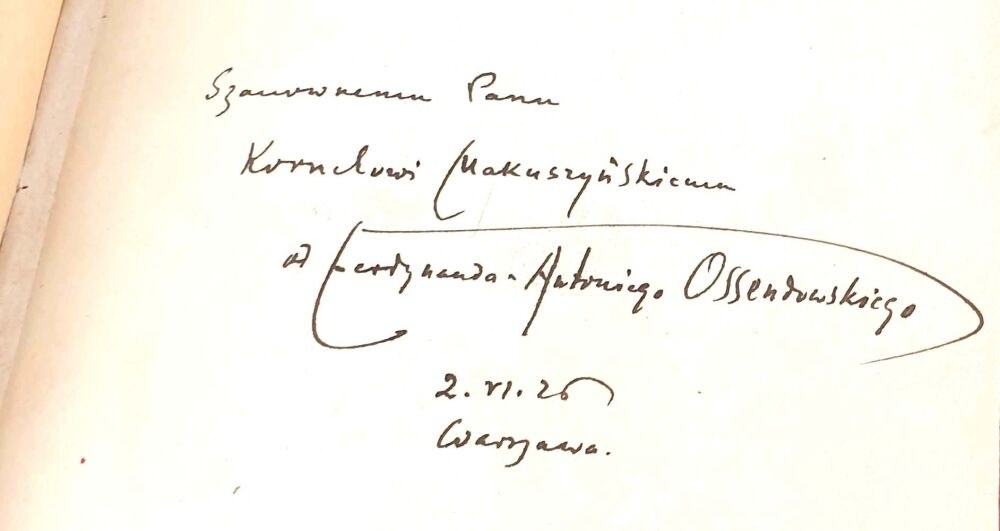 Szanownemu Panu
Kornelowi Makuszyńskiemu
od Ferdynanda-Antoniego Ossendowskiego
2.VI.26
Warszawa.